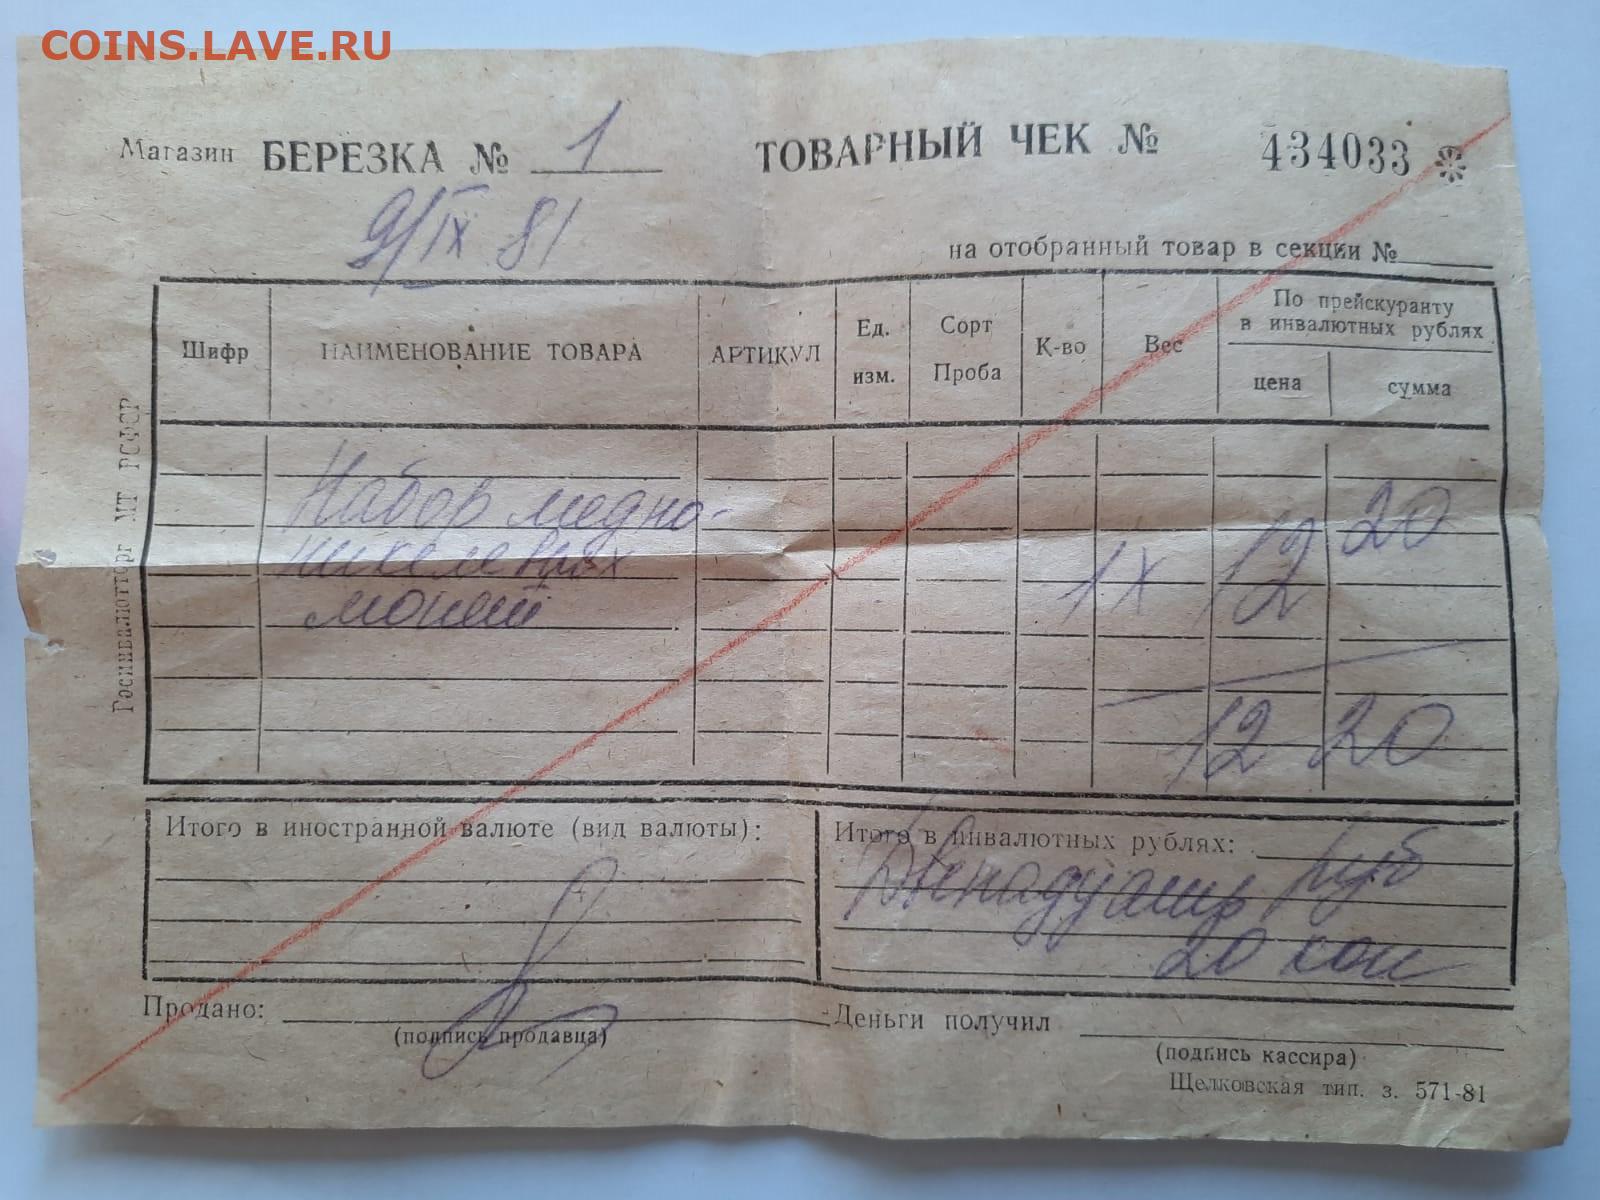 COINS.LAVE.RU
Магазин БЕРЕЗКА № 1 ТОВАРНЫЙ ЧЕК № 434033
9/IX 81
на отобранный товар в секции №
Шифр НАИМЕНОВАНИЕ ТОВАРА АРТИКУЛ Ед. изм. Сорт Проба К-во Вес По прейскуранту в инвалютных рублях цена сумма
Набор медно-
никелевых
монет
1 х 12 20
12 20
Росинвалютторг МТ РСФСР
Итого в иностранной валюте (вид валюты):
Итого в инвалютных рублях:
Двенадцать руб
20 коп
Продано:
(подпись продавца)
Деньги получил
(подпись кассира)
Щелковская тип. з. 571-81